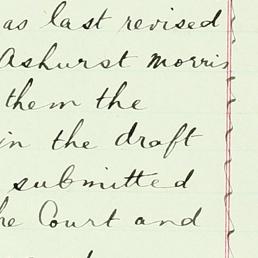 as last revised
Ashurst Morris
them the
in the draft
submitted
he Court and